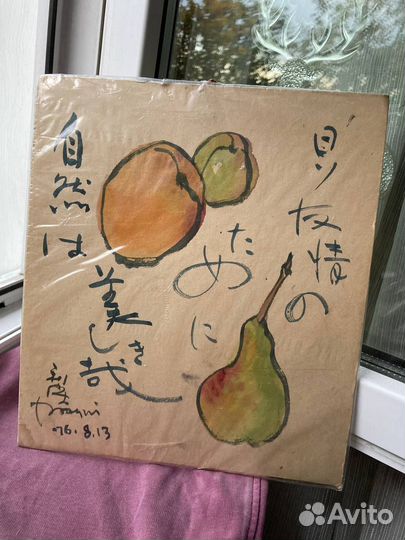 日ソ友情の
ために
自然は
美しき哉
76.8.13
Avito